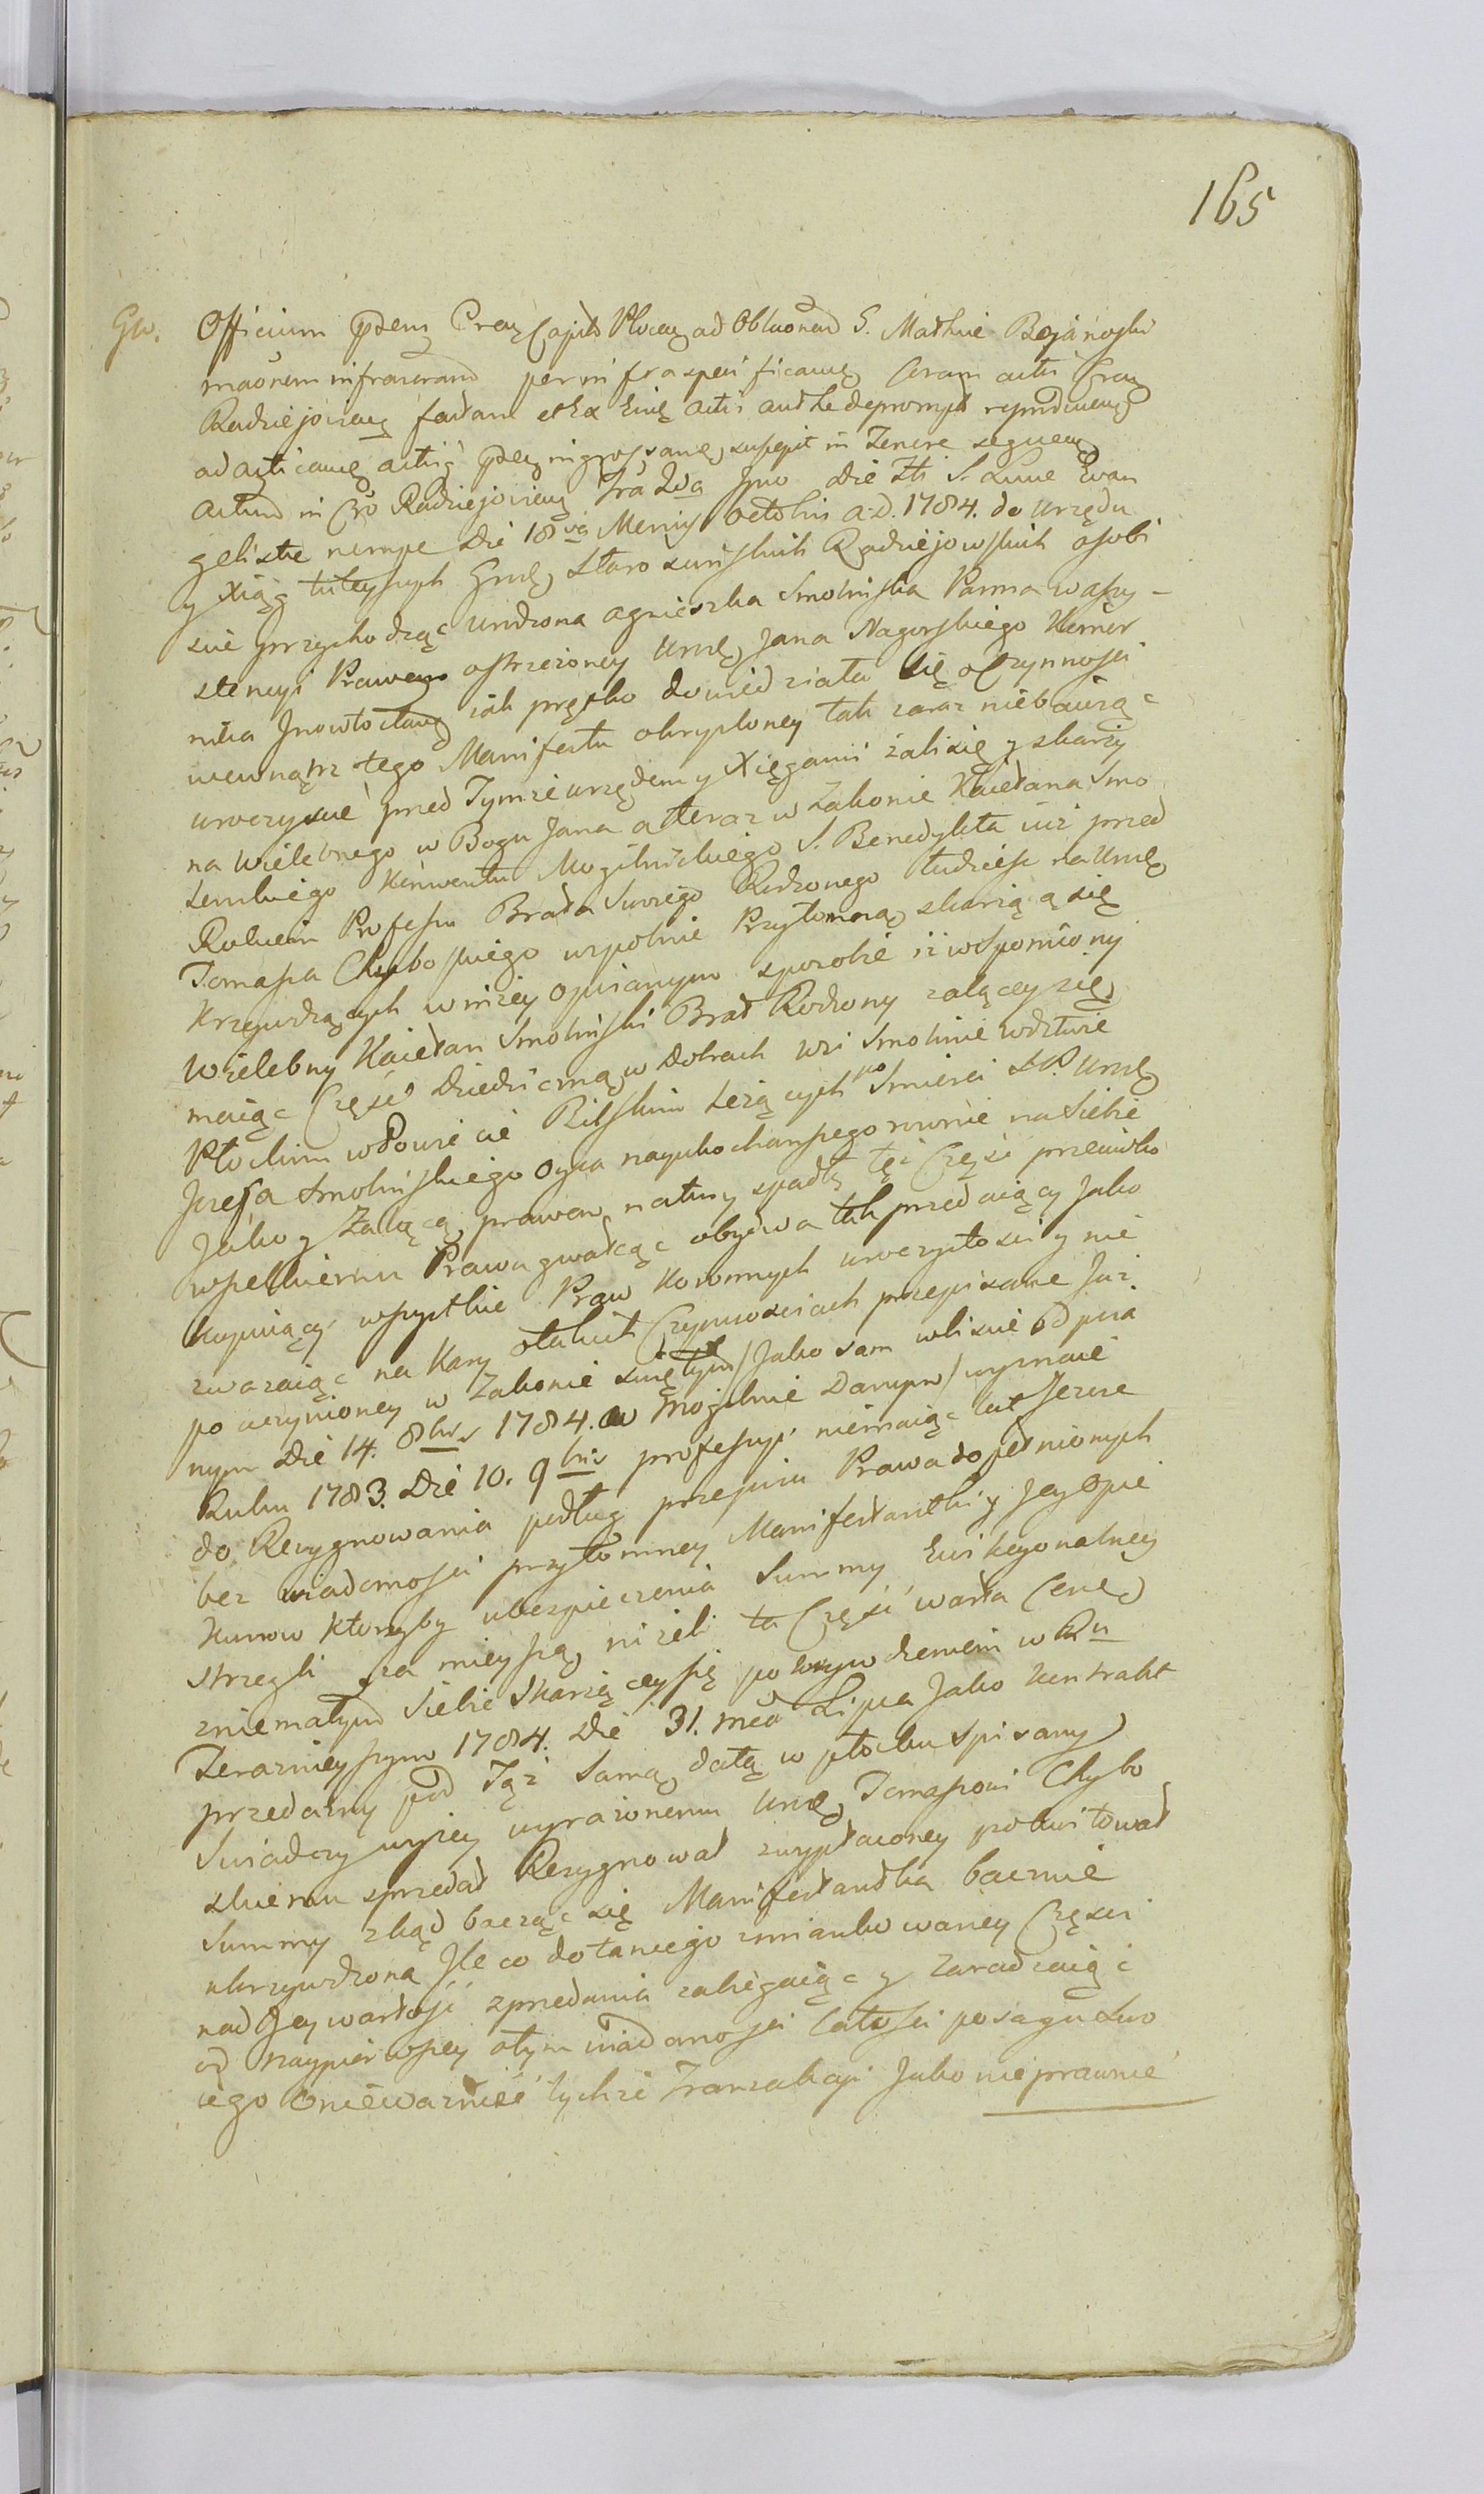 165
Gw. Officium pdens Crens Capit Plocens ad Oblaonem G. Mathie Bojanoski
maōnem infrascrand per infra specificanu Coram actis Cren
Radziejovien factam et ex eisdem actis authe depromp
ad acticanu actis pden ingrossanu suscepit in Tenore sequen
Actum in Cro Radziejovien Fra 2da Ipso die Fti S. Luce Evan
geliste nempe Die 18va Mensis Octobris a. d. 1784. do Urzędu
y Xiąg tuteyszych Grodz Staroscinskich Radziejowskich osobi
scie przychodząc Urodzona Agnieszka Smolinska Panna w assy-
stencyi Prawem ostrzezoney Urodz Jana Nagorskiego Komor
nika Inowłocław iak prętko dowiedziała się o Czynnosci
wewnątrz tego Manifestu okryploney tak zaraz niebawiąc
uroczyscie przed Tymze urzędem y Xięgami zali się y skarzy
na Wielebnego w Bogu Jana a teraz w Zakonie Kaietana Smo
lenskiego Konwentu Mogilnickiego S. Benedykta iuż przed
Rokiem Professa Brata Swoiego Rodzonego tudziesz na Urodz
Tomasza Chyboskiego wspolnie Przytomną skarzącą się
Krzywdzących w nizey opisanym sposobie iż wspomniony
Wielebny Kaietan Smolinski Brat Rodzony zalącey się
maiąc Część Dziedziczną w Dobrach Wsi Smolinie wdztwie
Płockim w Powiecie Bilskim Lezących po Smierci S.P. Urodz
Jozefa Smolinskiego Oyca nayukochanszego rownie na Siebie
Jako y Zalącą prawem natury spadłą tęż Część przeciwko
wszelkiemu Prawu gwałcąc obydwa tak przedaiący Jako
kupuiący wszystkie Praw Koronnych uroczystosci y nie
zwazaiąc na Kary o takich Czynnosciach przepisane Już
po uczynioney w Zakonie swiętym /Jako sam w liscie od pisa
nym Die 14. 8bris 1784. w Mogilnie Danym/ wyznaie
Roku 1783. Die 10. 9bris professyi niemaiąc lat Jeszcze
do Rezygnowania podług przepisu Prawa dopełnionych
bez wiadomosci przytomney Manifestantki y Jey Opie
kunow ktorzyby ubezpieczenia Summy Ewikcyonalney
strzegli za mieyszą nizeli ta Część warta Cenę
z niemałym Siebie Skarzącey się pokrzywdzeniem w Ru
Terazniejszym 1784. Die 31. mca Lipca Jako kontrakt
przedazny pod Tąż Samą datą w płocku spisany
Swiadczy wyzey wyrazonemu Urodz Tomaszowi Chybo
skiemu sprzedał Rezygnował z wypłaconey pokwitował
Summy zkąd bacząc się Manifestantka bacznie
ukrzywdzona Ile co do taniego zmiankowaney Częsci
nad Jey wartość zprzedania zabiegaiąc y Zaradzaiąc
od naypierwszey o tym wiadomosci całosci posagu Swo
iego o niewaznosć tychze Tranzakcyi Jako nieprawnie